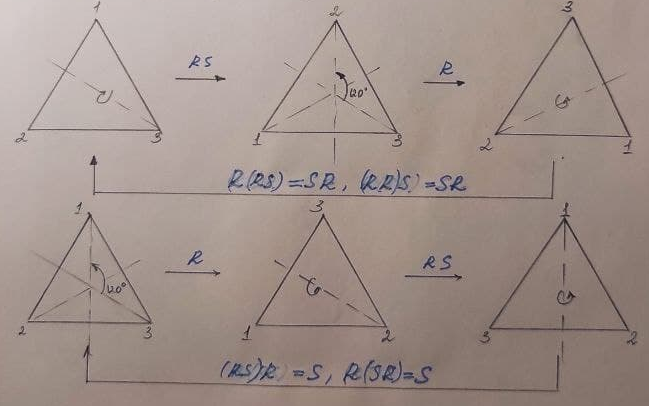 1 2 3
RS R
120°
2 3 1 3 2 1
R(RS) = SR, (RR)S) = SR
1 3 1
R RS
120°
2 3 1 2 3 2
(RS)R) = S, R(SR) = S